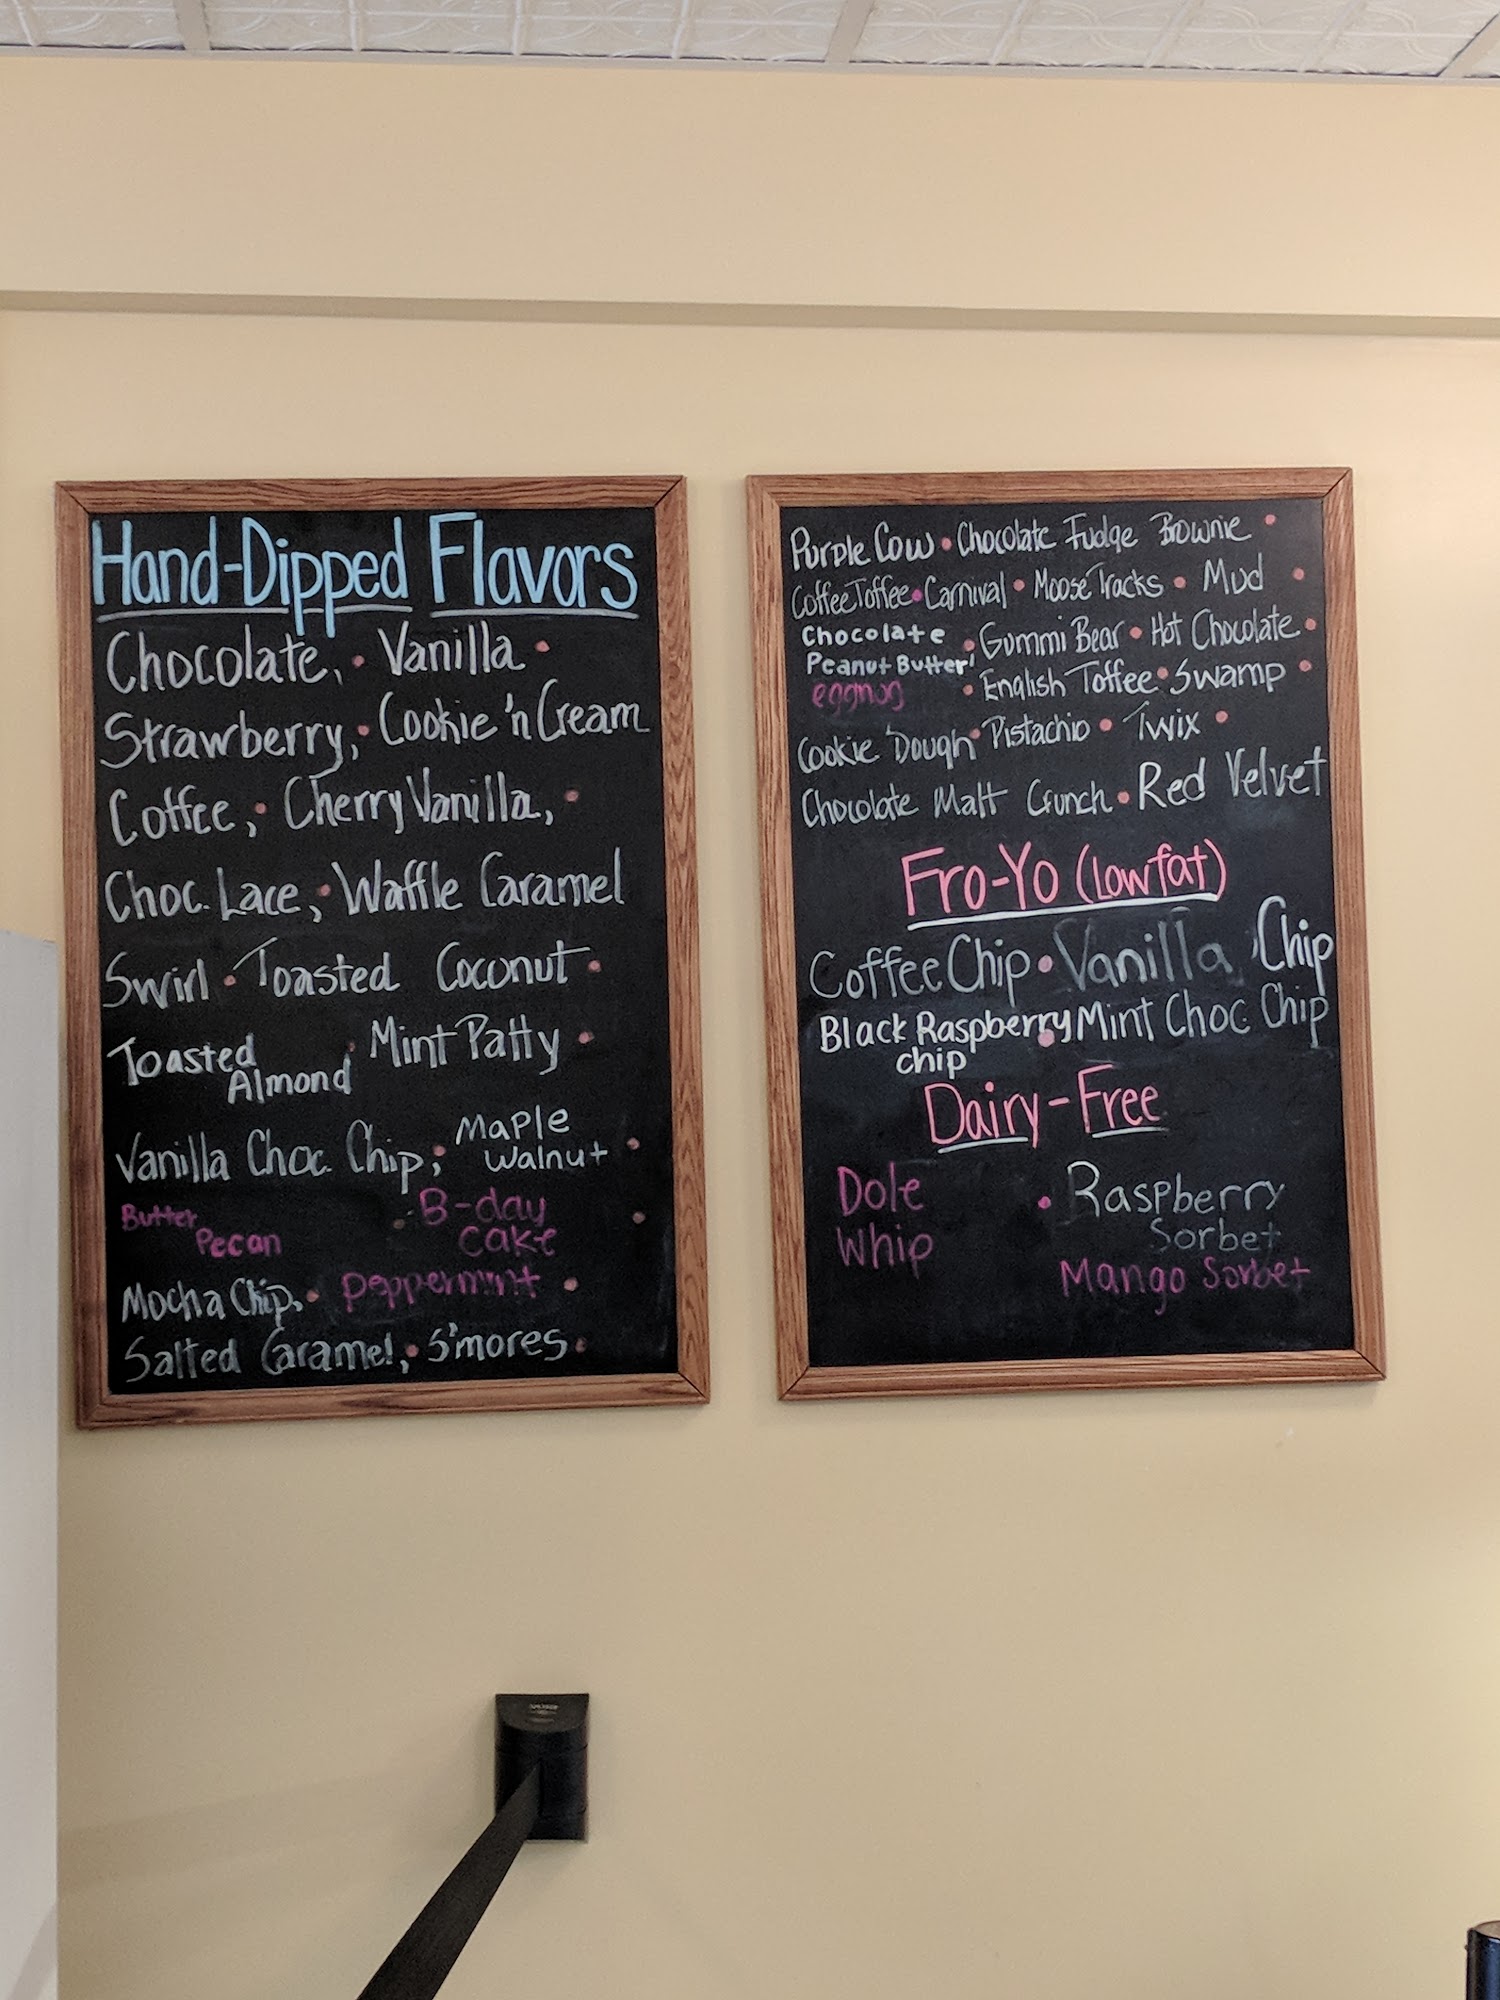 Hand-Dipped Flavors
Chocolate, • Vanilla •
Strawberry, • Cookie 'n Cream
Coffee, • Cherry Vanilla, •
Choc. Lace, • Waffle Caramel
Swirl • Toasted Coconut •
Toasted Almond • Mint Patty •
Vanilla Choc. Chip, • Maple Walnut •
Butter Pecan • B-day Cake •
Mocha Chip, • Peppermint •
Salted Caramel, • S'mores •
Purple Cow • Chocolate Fudge Brownie •
Coffee Toffee • Carnival • Moose Tracks • Mud •
Chocolate Peanut Butter • Gummi Bear • Hot Chocolate •
eggnog • English Toffee • Swamp •
Cookie Dough • Pistachio • Twix •
Chocolate Malt Crunch • Red Velvet
Fro-Yo (Lowfat)
Coffee Chip • Vanilla Chip
Black Raspberry chip • Mint Choc Chip
Dairy-Free
Dole Whip • Raspberry Sorbet
Mango Sorbet